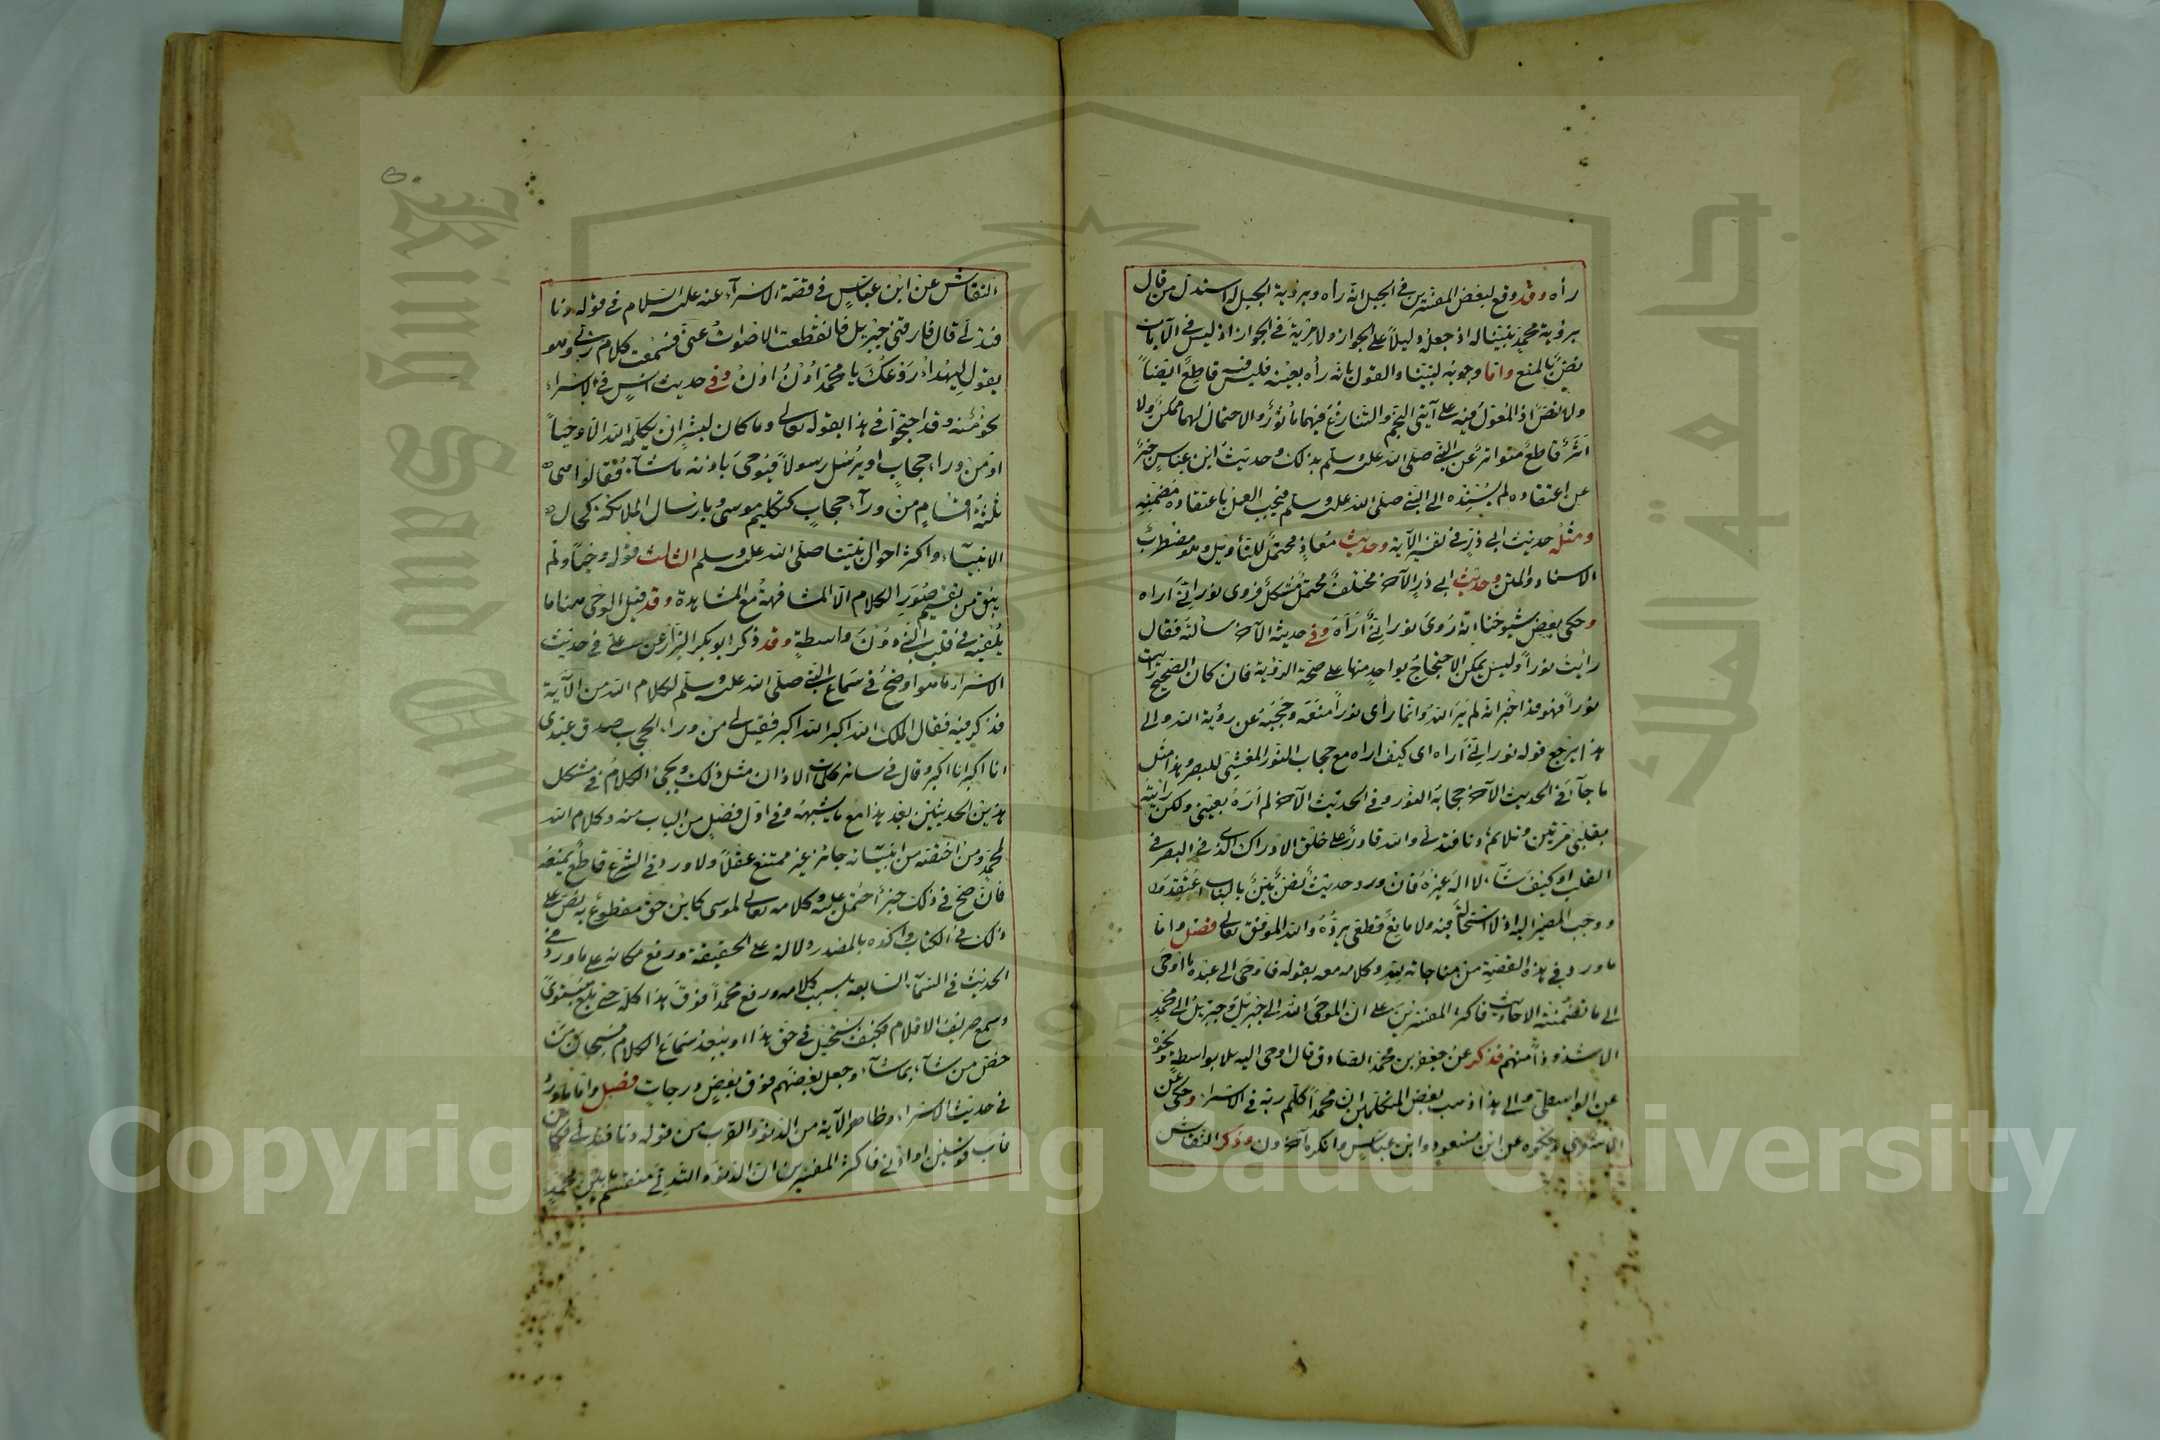 رأه وقد وقع لبعض المفسّرين في الجبل انّه رأه وبرؤية الجبل له استدل من قال
برؤية محمّدٍ نبيّنا له اذ جعله دليلاً على الجواز ولا مِرْيةَ في الجواز اذ ليس في الآيات
نصٌّ بالمنع وامّا وجوبه لنبيّنا والقول بانّه رأه بعينه فليس فيه قاطعٌ ايضاً
ولا نصٌّ اذ المُعوّلُ فيه على آيتي النجم والتّنازعُ فيهما مأثورٌ والاحتمالُ لهما ممكنٌ ولا
اثرٌ قاطعٌ متواترٌ عن النبيّ صلى الله عليه وسلم بذلك وحديث ابن عباسٍ خبرٌ
عن اعتقاده لم يُسْنِدْه الى النبيّ صلى الله عليه وسلم فيجب العمل باعتقاده مُضمّنِه
ومثلُه حديث ابي ذرّ في تفسير الآية وحديث مُعاذٍ محتملٌ للتأويل وهو مضطربُ
الاسناد والمتن وحديث ابي ذرّ الآخر مختلفٌ محتملٌ مُشكلٌ فروى نورٌ انّى أراه
وحكى بعض شيوخنا انه رُوى نورانيٌّ أراه وفي حديثه الآخر سألته فقال
رأيتُ نوراً وليس يمكن الاحتجاج بواحدٍ منها على صحّة الرؤية فان كان الصحيح رأيت
نوراً فهو قد اخبر انه لم يَرَ اللهَ وانّما رأى نوراً منعَه وحجَبَه عن رؤية الله والى
هذا يرجع قوله نورٌ انّى أراه اي كيف اراه مع حجاب النّور المغشّي للبصر وهذا مثل
ما جآء في الحديث الآخر حجابه النّور وفي الحديث الآخر لم اَرَهُ بعيني ولكن رأيته
بقلبي مرّتين وتلا ثمّ دنا فتدلّى والله قادرٌ على خلق الادراك الذي في البصر في
القلب او كيف شآء لا اله غيرُه فان ورد حديثٌ نصٌّ بيّنٌ بالباب اعتُقِد
ووجب المصير اليه اذ لا استحالةَ فيه ولا مانعَ قطعي يردّه والله الموفق تعالى فصل واما
ما ورد في هذه القصّة من مناجاته لله وكلامه معه بقوله فاوحى الى عبده ما اوحى
الى ما تضمّنته الاحاديث فاكثر المفسّرين على انّ الموحى الله الى جبريل وجبريل الى محمّدٍ
الا شذوذاً منهم فذكر عن جعفر بن محمّد الصّادق قال اوحى اليه بلا واسطةٍ ونحوه
عن الواسطي والى هذا ذهب بعض المتكلمين ان محمداً كلّم ربّه في الاسراء وحكى عن
الاشعري وحكوه عن ابن مسعودٍ وابن عباسٍ وانكره آخرون وذكر النقّاش
النقّاش عن ابن عبّاسٍ في قصّة الاسرآء عنه عليه السّلام في قوله دنا
فتدلّى قال فارقني جبريل فانقطعت الاصواتُ عنّي فسمعت كلام ربّي وهو
يقول ليهدأ رَوْعُك يا محمّد اُدْنُ اُدْنُ وفي حديث انسٍ في الاسراء
نحوٌ منه وقد احتجّوا في هذا بقوله تعالى وما كان لبشرٍ ان يكلّمه الله الاّ وحياً
او من ورآءِ حجابٍ او يُرسلَ رسولاً فيوحىَ باذنه ما يشآء فقالوا هي
ثلثة اقسامٍ من ورآء حجابٍ كتكليم موسى وبارسال الملائكة كحال
الانبيآء واكثر احوال نبيّنا صلّى الله عليه وسلم الثالث قوله وحيا ولم
يبق من تقسيم صُوَر الكلام الا المشافهةُ مع المشاهدة وقد قيل الوحى ههنا ما
يُلقيه في قلب النبيّ دونَ واسطةٍ وقد ذكر ابو بكر البزّار عن علي في حديث
الاسراء ما هو اوضح في سماع النبيّ صلّى الله عليه وسلم لكلام الله من الآية
فذكر فيه فقال الملك الله اكبر الله اكبر فقيل لي من ورآء الحجاب صدق عبدي
انا اكبر انا اكبر وقال في سائر كلمات الاذان مثل ذلك ويجئ الكلامُ في مشكل
هذين الحديثين بعد هذا مع ما يشبهه وفي اوّل فصلٍ من الباب منه وكلام الله
لمحمّدٍ ومن اختصّه من انبيآئه جائز غير ممتنع عقلاً ولا ورد في الشرع قاطعٌ يمنعه
فان صحّ في ذلك خبرٌ احتمل عليه وكلامه تعالى لموسى كائن حق مقطوع به نصّ على
ذلك في الكتاب واكّده بالمصدر دلالة على الحقيقة ورفع مكانه على ما ورد في
الحديث في السّمآء السّابعة بسبب كلامه ورفع محمّداً فوق هذا كلّه حتى بلغ مستوىً
وسمع صريف الاقلام فكيف يستحيل في حقّ هذا او يبعد سماعُ الكلام فسبحان من
خصّ من شآء بما شآء وجعل بعضهم فوق بعضٍ درجات فصل وامّا ما ورد
في حديث الاسراء وظاهر الآية من الدّنوّ والقرب من قوله دنا فتدلّى فكان
قاب قوسين او ادنى فاكثر المفسّرين انّ الدّنوّ والتّدلّي منقسمٌ ما بين محمّدٍ
جامعة الملك سعود
King Saud University
1957
Copyright © King Saud University